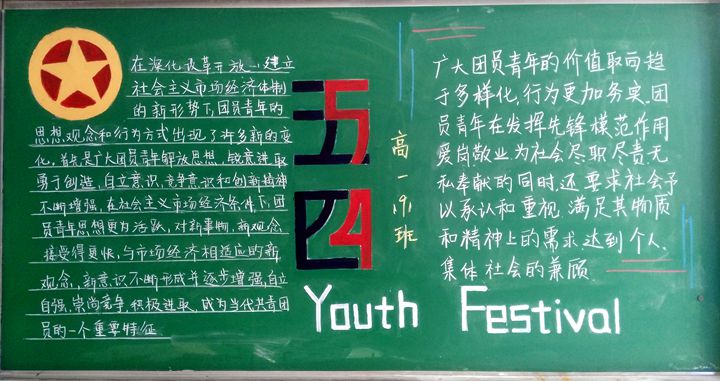 在深化改革开放、建立
社会主义市场经济体制
的新形势下,团员青年的
思想、观念和行为方式出现了许多新的变
化,首先是广大团员青年解放思想、锐意进取
勇于创造,自立意识、竞争意识和创新精神
不断增强,在社会主义市场经济条件下,团
员青年思想更为活跃,对新事物、新观念
接受得更快,与市场经济相适应的新
观念、新意识不断形成并逐步增强,自立
自强、崇尚竞争、积极进取、成为当代共青团
员的一个重要特征
五5
四4
高一、九班
广大团员青年的价值取向趋
于多样化,行为更加务实。团
员青年在发挥先锋模范作用
爱岗敬业为社会尽职尽责无
私奉献的同时,还要求社会予
以承认和重视,满足其物质
和精神上的需求达到个人、
集体、社会的兼顾.
Youth Festival